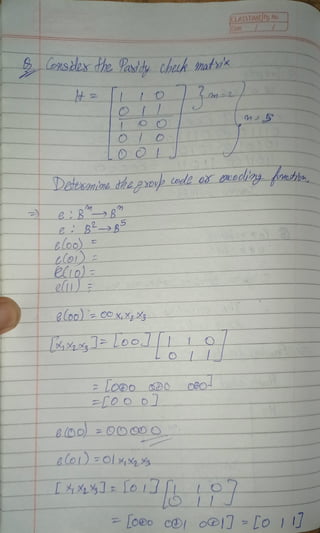 CLASSTIME Pg No.
Date / /
Q. Consider the Parity check matrix
H = [ 1 1 0
0 1 1 } m=2
1 0 0
0 1 0
0 0 1 ] n = 5
Determine the group code or encoding function.
=> e : Bᵐ → Bⁿ
e : B² → B⁵
e(00) =
e(01) =
e(10) =
e(11) =
e(00) = 00 x₁ x₂ x₃
[x₁ x₂ x₃] = [0 0] [ 1 1 0
0 1 1 ]
= [0⊕0 0⊕0 0⊕0]
= [0 0 0]
e(00) = 00000
e(01) = 01 x₁ x₂ x₃
[x₁ x₂ x₃] = [0 1] [ 1 1 0
0 1 1 ]
= [0⊕0 0⊕1 0⊕1] = [0 1 1]